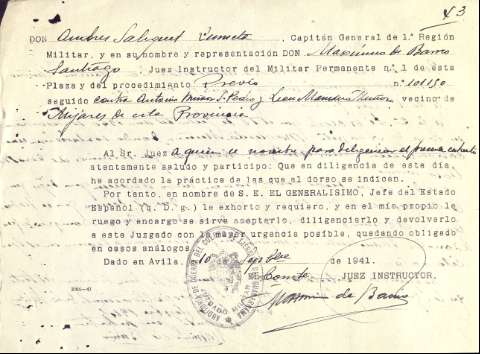 43
DON Andres Saliquet Zumeta, Capitán General de 1ª Región
Militar, y en su nombre y representación DON Maximino de Barrio
Santiago, Juez Instructor del Militar Permanente nº 1 de esta
Plaza y del procedimiento Previo nº 101150
seguido contra Antonio S. Pedro y Leon vecino de
de esta Provincia
Al Sr. Juez a quien se nombre para diligenciar el presente
atentamente saludo y participo: Que en diligencia de este día
he acordado la práctica de las que al dorso se indican.
Por tanto, en nombre de S. E. EL GENERALISIMO, Jefe del Estado
Español (q. D. g.) le exhorto y requiero, y en el mío propio le
ruego y encargo se sirva aceptarlo, diligenciarlo y devolverlo
a este Juzgado con la mayor urgencia posible, quedando obligado
en casos análogos.
Dado en Avila, 10 de de 1941.
El Comte. JUEZ INSTRUCTOR.
Maximino de Barrio